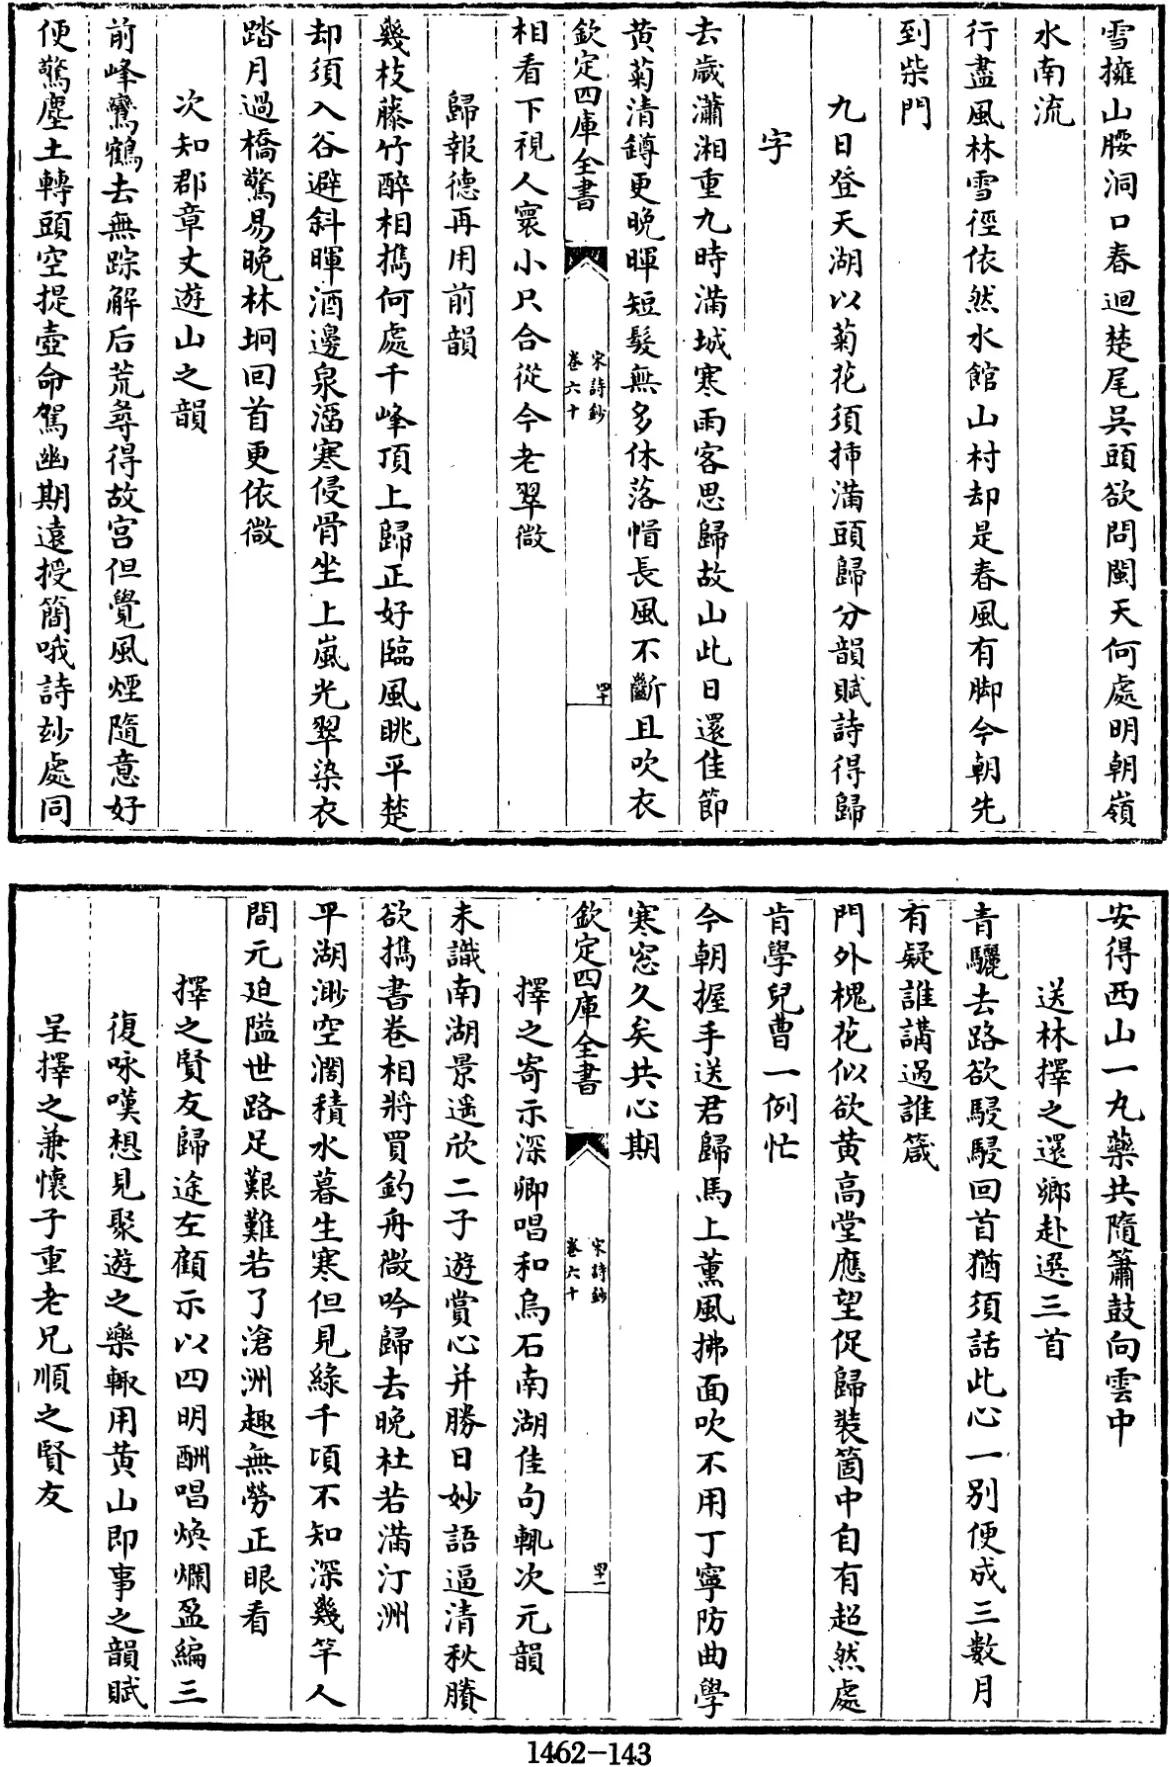 雪擁山腰洞口春迴楚尾吳頭欲問閩天何處明朝嶺
水南流
行盡風林雪徑依然水館山村却是春風有脚今朝先
到柴門
九日登天湖以菊花須揷滿頭歸分韻賦詩得歸
字
去歲瀟湘重九時滿城寒雨客思歸故山此日還佳節
黄菊清罇更晩暉短髪無多休落帽長風不斷且吹衣
欽定四庫全書
宋詩鈔
卷六十
四十
相看下視人寰小只合從今老翠微
歸報德再用前韻
幾枝藤竹醉相擕何處千峰頂上歸正好臨風眺平楚
却須入谷避斜暉酒邊泉溜寒侵骨坐上嵐光翠染衣
踏月過橋驚易晩林坰回首更依微
次知郡章丈遊山之韻
前峰鸞鶴去無踪解后荒尋得故宫但覺風煙隨意好
便驚塵土轉頭空提壺命駕幽期遠授簡哦詩玅處同
安得西山一丸藥共隨簫鼓向雲中
送林擇之還鄉赴選三首
青驪去路欲駸駸回首猶須話此心一别便成三數月
有疑誰講過誰箴
門外槐花似欲黄高堂應望促歸裝箇中自有超然處
肯學兒曹一例忙
今朝握手送君歸馬上薰風拂面吹不用丁寧防曲學
寒窓久矣共心期
欽定四庫全書
宋詩鈔
卷六十
四十一
擇之寄示深卿唱和烏石南湖佳句輒次元韻
未識南湖景遥欣二子遊賞心并勝日妙語逼清秋賸
欲擕書卷相將買釣舟微吟歸去晩杜若滿汀洲
平湖渺空濶積水暮生寒但見緑千頃不知深幾竿人
間元廹隘世路足艱難若了滄洲趣無勞正眼看
擇之賢友歸途左顧示以四明酬唱煥爛盈編三
復咏嘆想見聚遊之樂輙用黄山即事之韻賦
呈擇之兼懷子重老兄順之賢友
1462-143